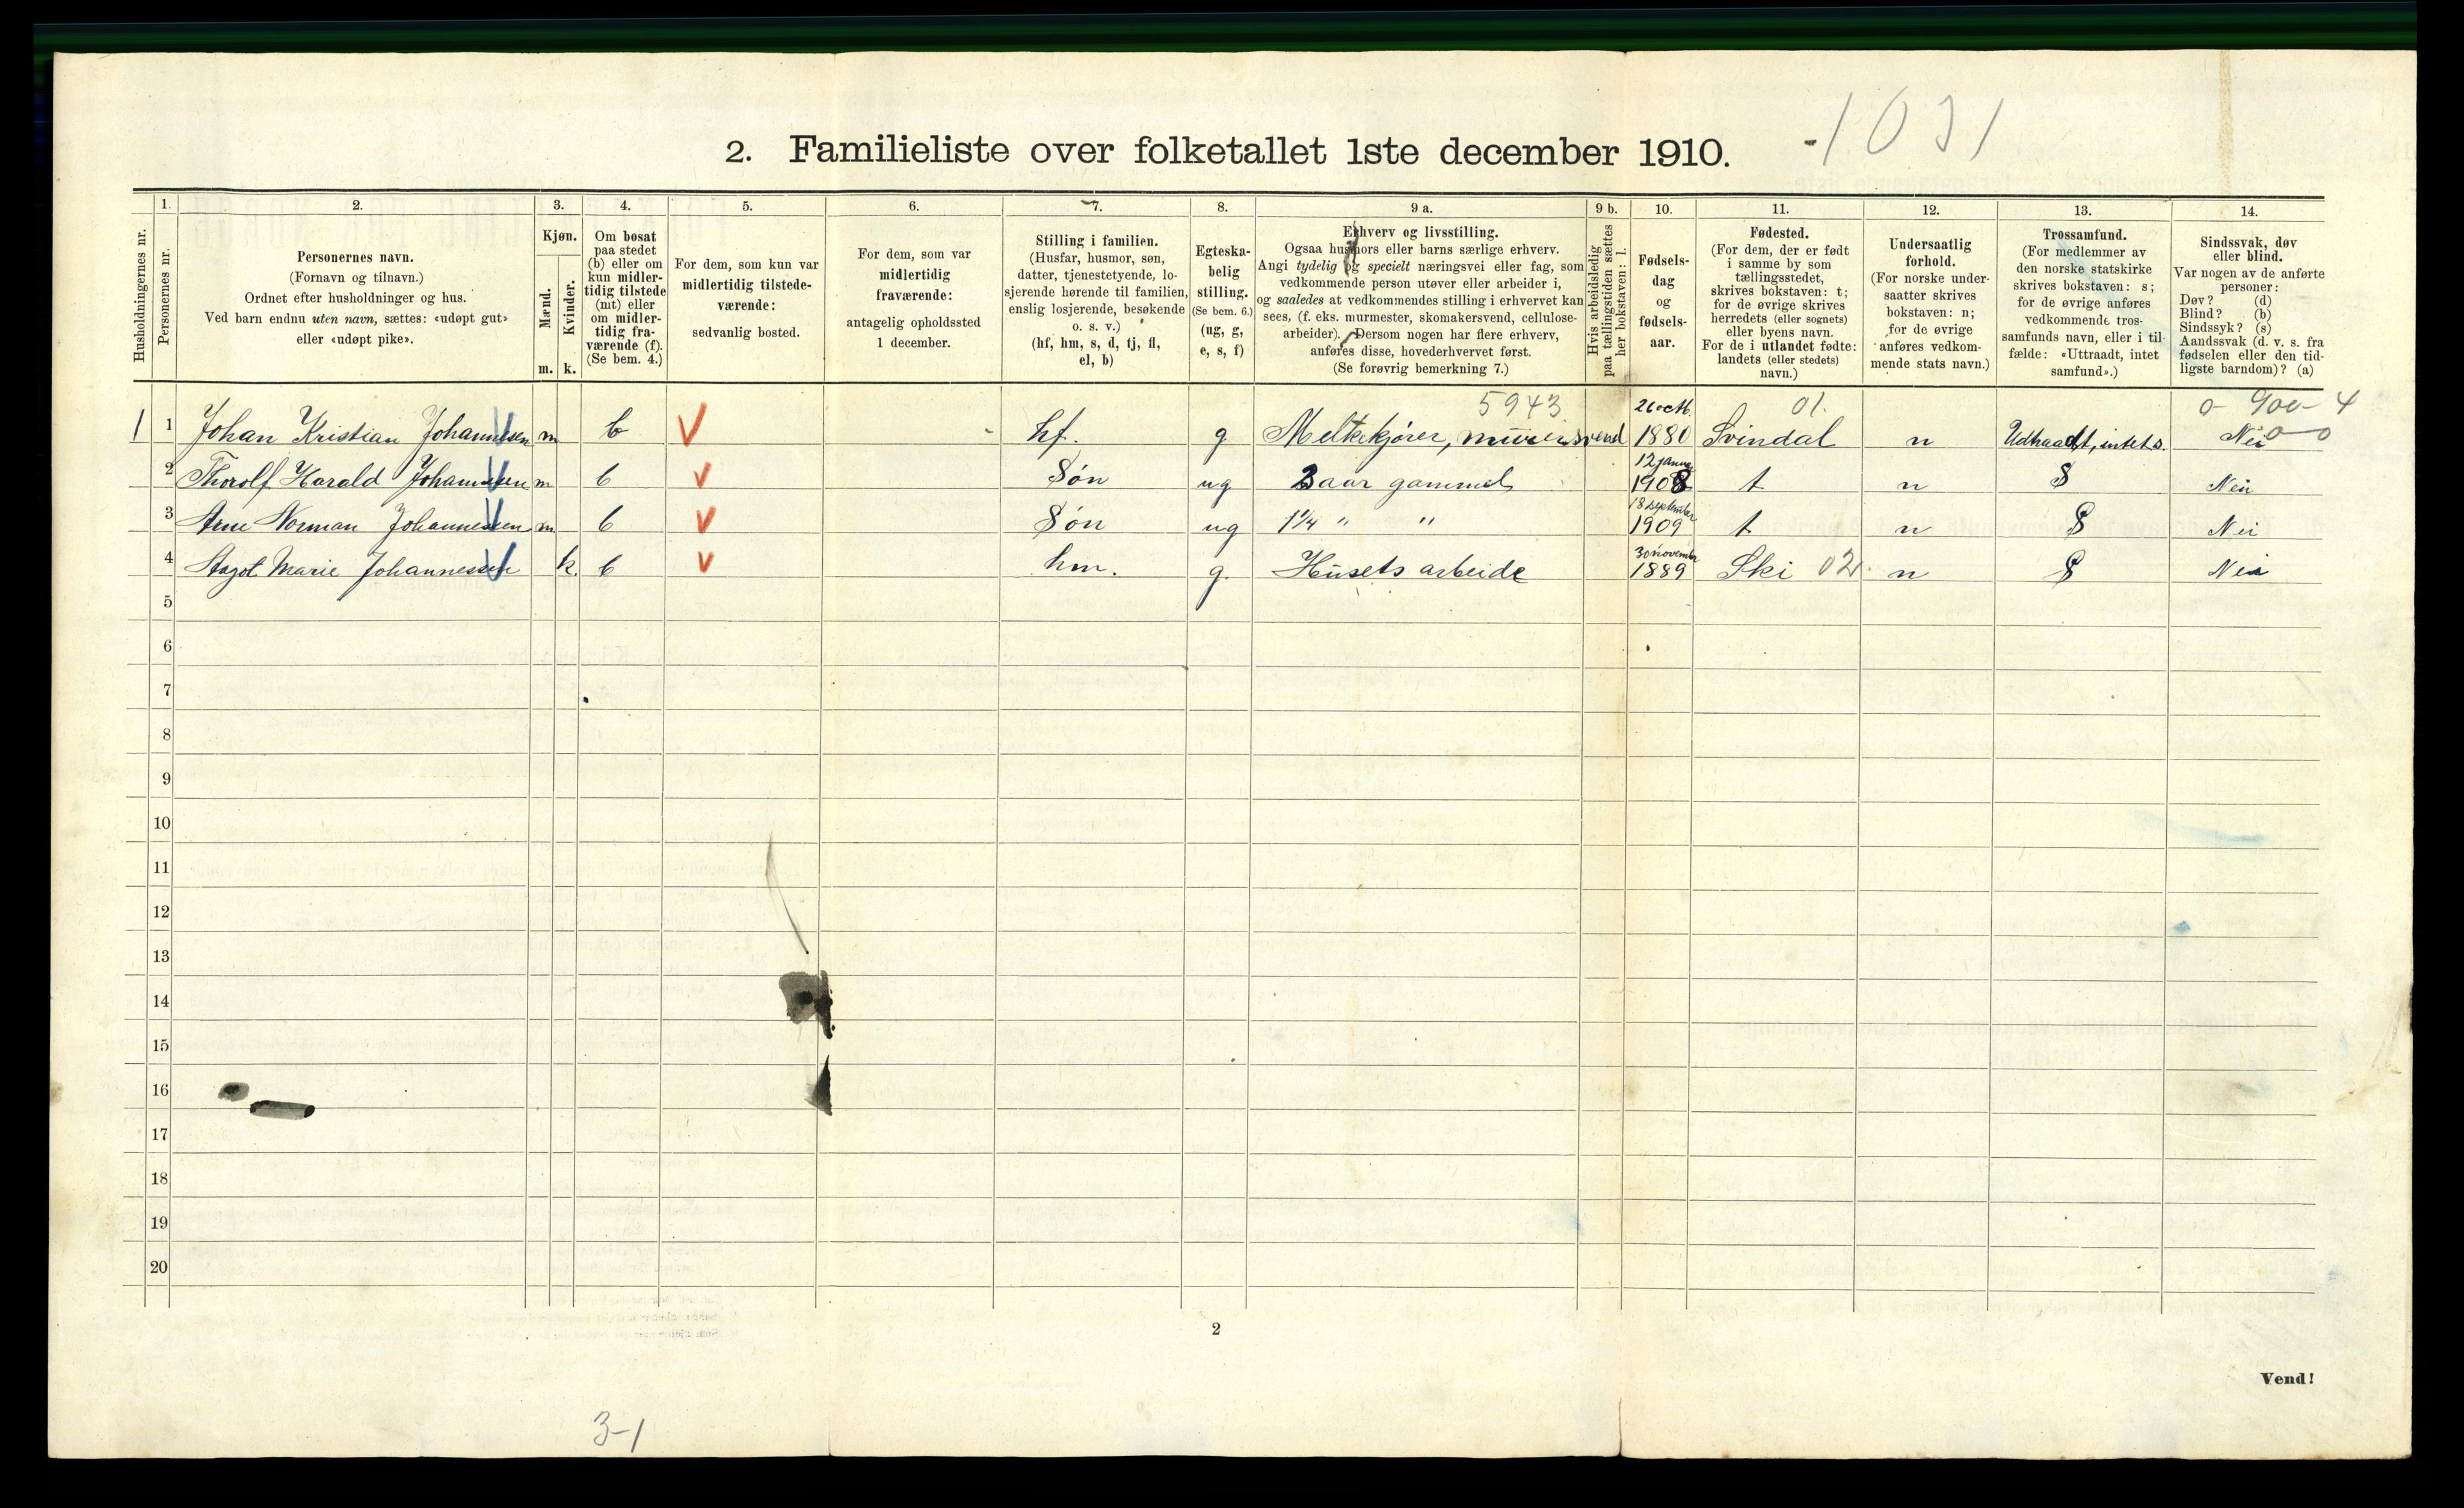 2. Familieliste over folketallet 1ste december 1910.
-1031
Husholdningernes nr.
1.
Personernes nr.
2.
Personernes navn.
(Fornavn og tilnavn.)
Ordnet efter husholdninger og hus.
Ved barn endnu uten navn, sættes: «udøpt gut»
eller «udøpt pike».
3.
Kjøn.
Mænd.
Kvinder.
m. k.
4.
Om bosat
paa stedet
(b) eller om
kun midler-
tidig tilstede
(mt) eller
om midler-
tidig fra-
værende (f).
(Se bem. 4.)
5.
For dem, som kun var
midlertidig tilstede-
værende:
sedvanlig bosted.
6.
For dem, som var
midlertidig
fraværende:
antagelig opholdssted
1 december.
7.
Stilling i familien.
(Husfar, husmor, søn,
datter, tjenestetyende, lo-
sjerende hørende til familien,
enslig losjerende, besøkende
o. s. v.)
(hf, hm, s, d, tj, fl,
el, b)
8.
Egteska-
belig
stilling.
(Se bem. 6.)
(ug, g,
e, s, f)
9 a.
Erhverv og livsstilling.
Ogsaa husmors eller barns særlige erhverv.
Angi tydelig og specielt næringsvei eller fag, som
vedkommende person utøver eller arbeider i,
og saaledes at vedkommendes stilling i erhvervet kan
sees, (f. eks. murmester, skomakersvend, cellulose-
arbeider). Dersom nogen har flere erhverv,
anføres disse, hovederhvervet først.
(Se forøvrig bemerkning 7.)
9 b.
Hvis arbeidsledig
paa tællingstiden sættes
her bokstaven: l.
10.
Fødsels-
dag
og
fødsels-
aar.
11.
Fødested.
(For dem, der er født
i samme by som
tællingsstedet,
skrives bokstaven: t;
for de øvrige skrives
herredets (eller sognets)
eller byens navn.
For de i utlandet fødte:
landets (eller stedets)
navn.)
12.
Undersaatlig
forhold.
(For norske under-
saatter skrives
bokstaven: n;
for de øvrige
anføres vedkom-
mende stats navn.)
13.
Trossamfund.
(For medlemmer av
den norske statskirke
skrives bokstaven: s;
for de øvrige anføres
vedkommende tros-
samfunds navn, eller i til-
fælde: «Uttraadt, intet
samfund».)
14.
Sindssvak, døv
eller blind.
Var nogen av de anførte
personer:
Døv? (d)
Blind? (b)
Sindssyk? (s)
Aandssvak (d. v. s. fra
fødselen eller den tid-
ligste barndom)? (a)
5943 26 octb. 01. 0- 900- 4
1 1 Johan Kristian Johannesen m b hf. g Melkekjører, murersvend 1880 Svindal n Udtraadt, intet s. Nei 0-0
12 januar
2 Thorolf Harald Johannesen m b Søn ug 3 aar gammel 1908 t n S Nei
18 september
3 Arne Norman Johannessen m b Søn ug 1¼ " " 1909 t n S Nei
30 novembr
4 Aagot Marie Johannessen k. b hm. g. Husets arbeide 1889 Ski 02. n S Nei
5
6
7
8
9
10
11
12
13
14
15
16
17
18
19
20
2
Vend!
3-1